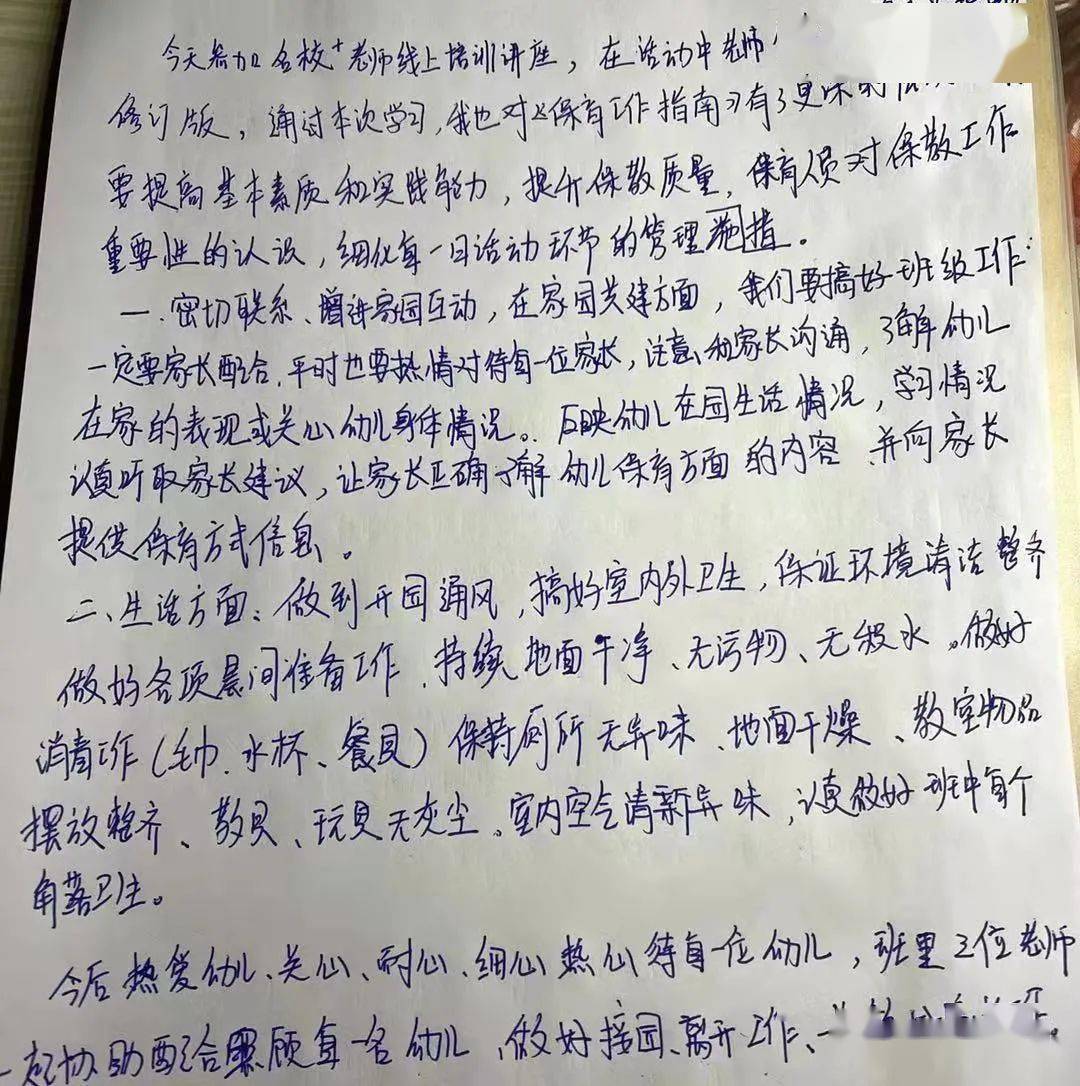 今天参加名校+老师线上培训讲座，在活动中老师
修订版，通过本次学习，我也对《保育工作指南》有了更味的
要提高基本素质和实践能力，提升保教质量，保育人员对保教工作
重要性的认识，细化每一日活动环节的管理措。
一.密切联系、增进家园互动，在家园共建方面，我们要搞好班级工作：
一定要家长配合，平时也要热情对待每一位家长，注意和家长沟通，了解幼儿
在家的表现或关心幼儿身体情况。反映幼儿在园生活情况，学习情况
认真听取家长建议，让家长正确了解幼儿保育方面的内容，并向家长
提供保育方式信息。
二、生活方面：做到开园通风，搞好室内外卫生，保证环境清洁整齐
做好各项晨间准备工作，持续地面干净、无污物、无积水。做好
消毒工作（毛巾、水杯、餐具）保持厕所无异味、地面干燥、教室物品
摆放整齐、教具、玩具无灰尘。室内空气清新异味，认真做好班中每个
角落卫生。
今后热爱幼儿、关心、耐心、细心热心待每一位幼儿，班里三位老师
一起协助配合照顾每一名幼儿，做好接园、离开工作、